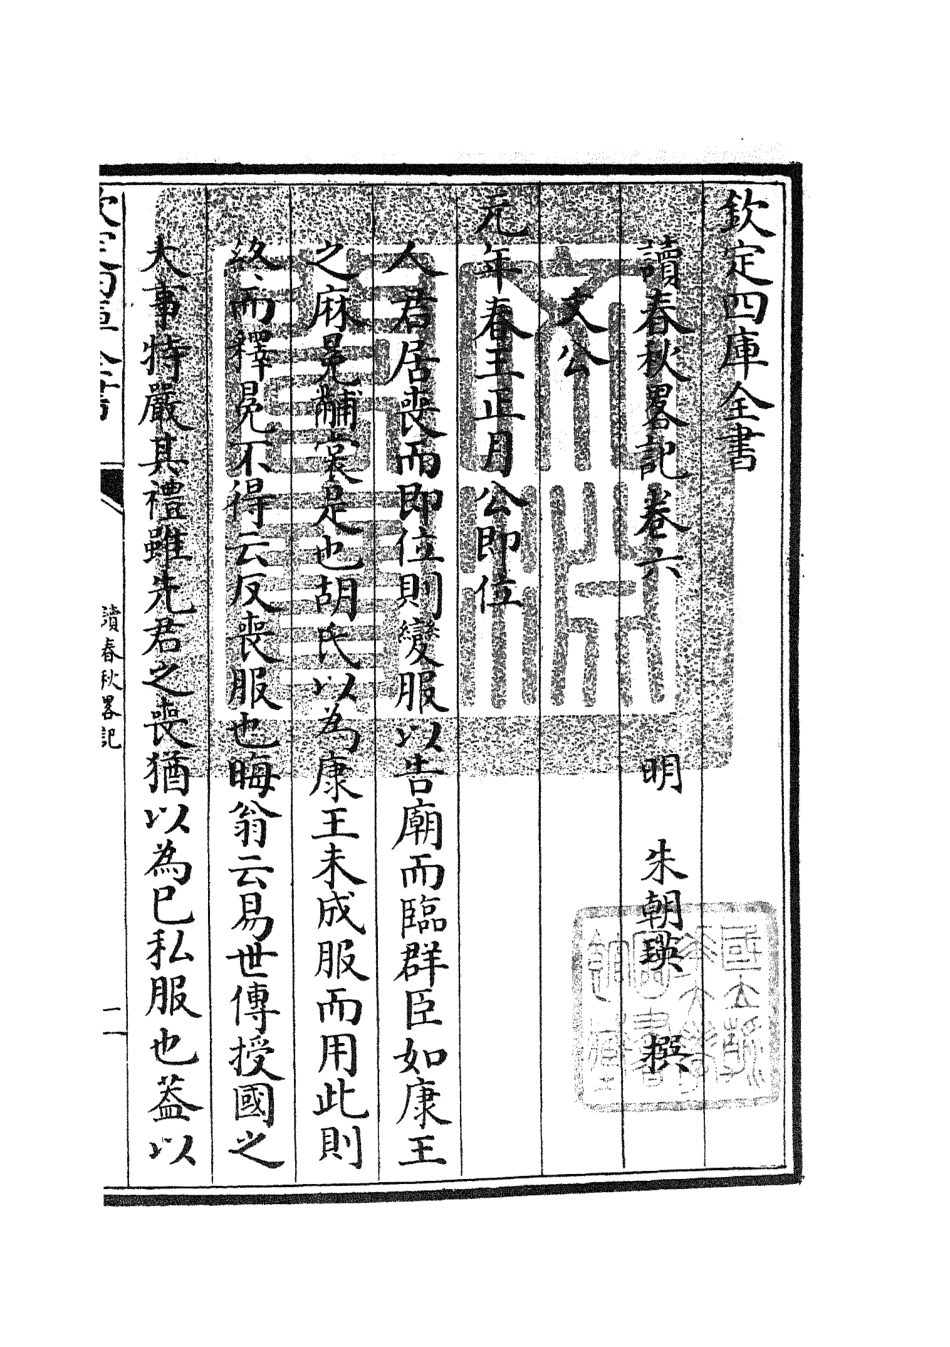 欽定四庫全書
讀春秋畧記卷六
明 朱朝瑛 撰
文公
元年春王正月公即位
人君居喪而即位則變服以告廟而臨群臣如康王
之麻冕黼裳是也胡氏以為康王未成服而用此則
終而釋冕不得云反喪服也晦翁云易世傳授國之
大事特嚴其禮雖先君之喪猶以為已私服也蓋以
讀春秋畧記